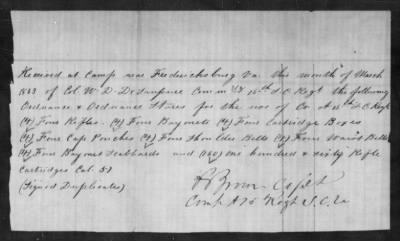 Received at Camp near Fredericksburg Va. this month of March
1863 of Col. W. D. DeSaussure Com'in 15th S C Regt the following
Ordnance & Ordnance Stores for the use of Co A 15th S C Regt
(4) Four Rifles. (4) Four Bayonets (4) Four Cartridge Boxes
(4) Four Cap Pouches (4) Four Shoulder Belts (4) Four Waist Belts
(4) Four Bayonet Scabbards and (160) one hundred & sixty Rifle
Cartridges Cal. 57
(Signed Duplicates)
Capt
Comp A 15 Regt S. C. Vo